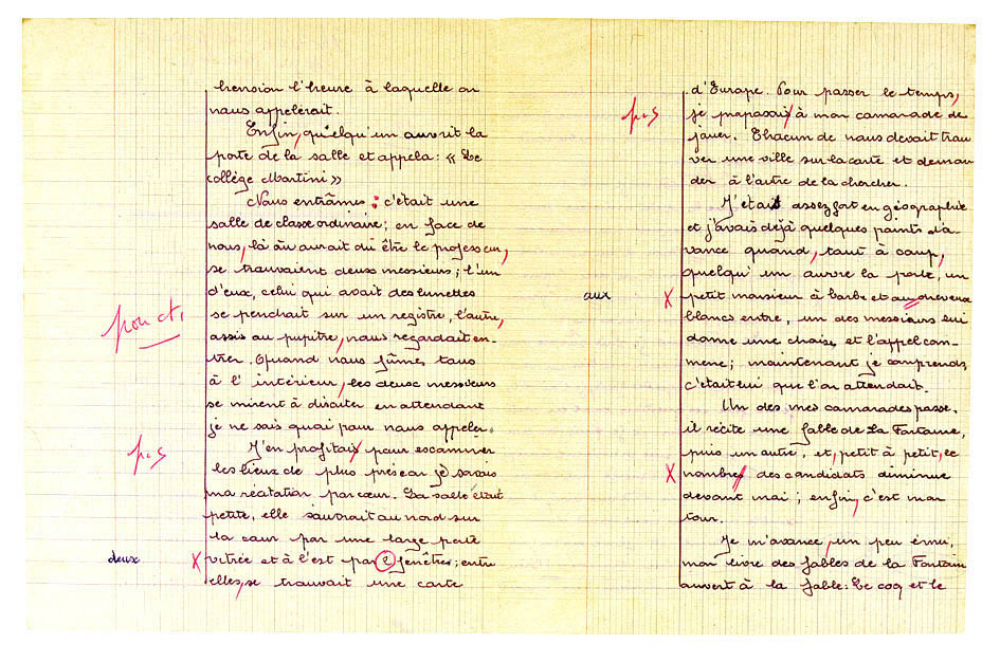 hension l'heure à laquelle on
nous appelerait.
Enfin, quelqu'un ouvrit la
porte de la salle et appela : « Le
collège Martini »
Nous entrâmes : c'était une
salle de classe ordinaire ; en face de
nous, là où aurait dû être le professeur,
se trouvaient deux messieurs ; l'un
d'eux, celui qui avait des lunettes
ponct.
se penchait sur un registre, l'autre,
assis au pupitre, nous regardait en-
trer. Quand nous fûmes tous
à l'intérieur, les deux messieurs
se mirent à discuter en attendant
je ne sais quoi pour nous appeler.
ps
J'en profitais pour examiner
les lieux de plus près car je savais
ma récitation par cœur. La salle était
petite, elle s'ouvrait au nord sur
la cour par une large porte
deux x vitrée et à l'est par 2 fenêtres ; entre
elles, se trouvait une carte
d'Europe. Pour passer le temps,
ps
je proposais à mon camarade de
jouer. Chacun de nous devait trou
ver une ville sur la carte et deman
der à l'autre de la chercher.
J'étais assez fort en géographie
et j'avais déjà quelques points d'a
vance quand, tout à coup,
quelqu'un ouvre la porte, un
aux x petit monsieur à barbe et au cheveux
blancs entre, un des messieurs lui
donne une chaise, et l'appel com-
mence ; maintenant je comprends
c'était lui que l'on attendait.
Un des mes camarades passe,
il récite une fable de La Fontaine,
puis un autre, et, petit à petit, le
x nombres des candidats diminue
devant moi ; enfin, c'est mon
tour.
Je m'avance, un peu ému,
mon livre des fables de la Fontain
ouvert à la fable : Le coq et le